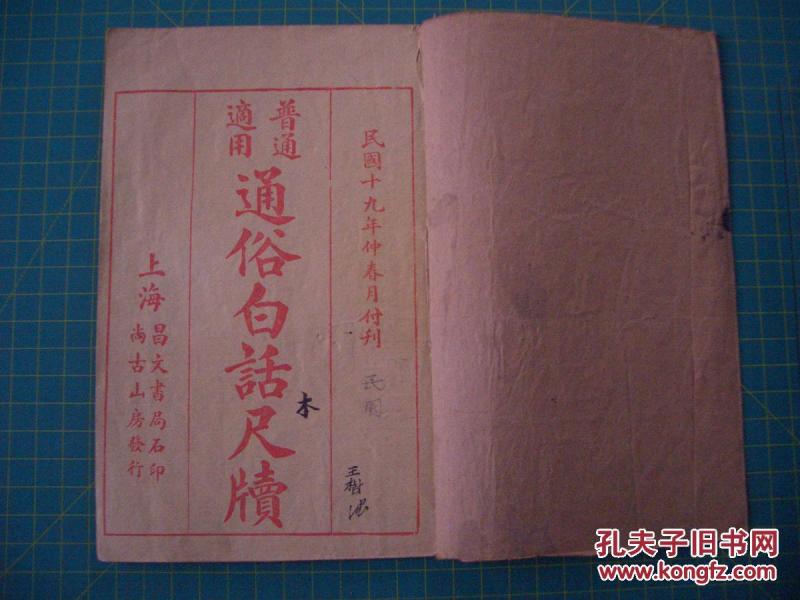 民國十九年仲春月付刊
民國
普通
適用
通俗白話尺牘
本
上海
昌文書局石印
尚古山房發行
孔夫子旧书网
www.kongfz.com